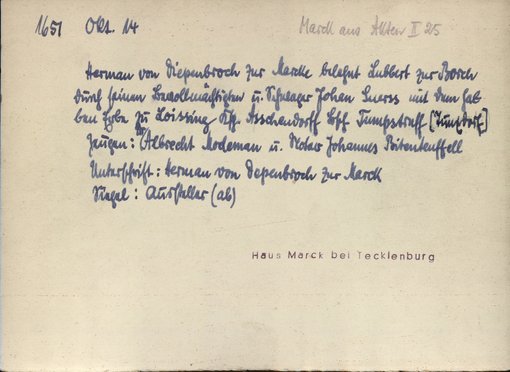 1651 Okt. 14 Marck aus Akten II 25
Herman von Diepenbroch zur Marcke belehnt Lubbert zur Borch
durch seinen Bevollmächtigten u. Schwager Johan Suerss mit dem hal
ben Erbe zu Loissing Ksp. Asschendorff Bsch.
Zeugen: Albrecht Modeman u. Notar Johannes
Unterschrift: Herman von Depenbroch zur Marck
Siegel: Aussteller (ab)
Haus Marck bei Tecklenburg